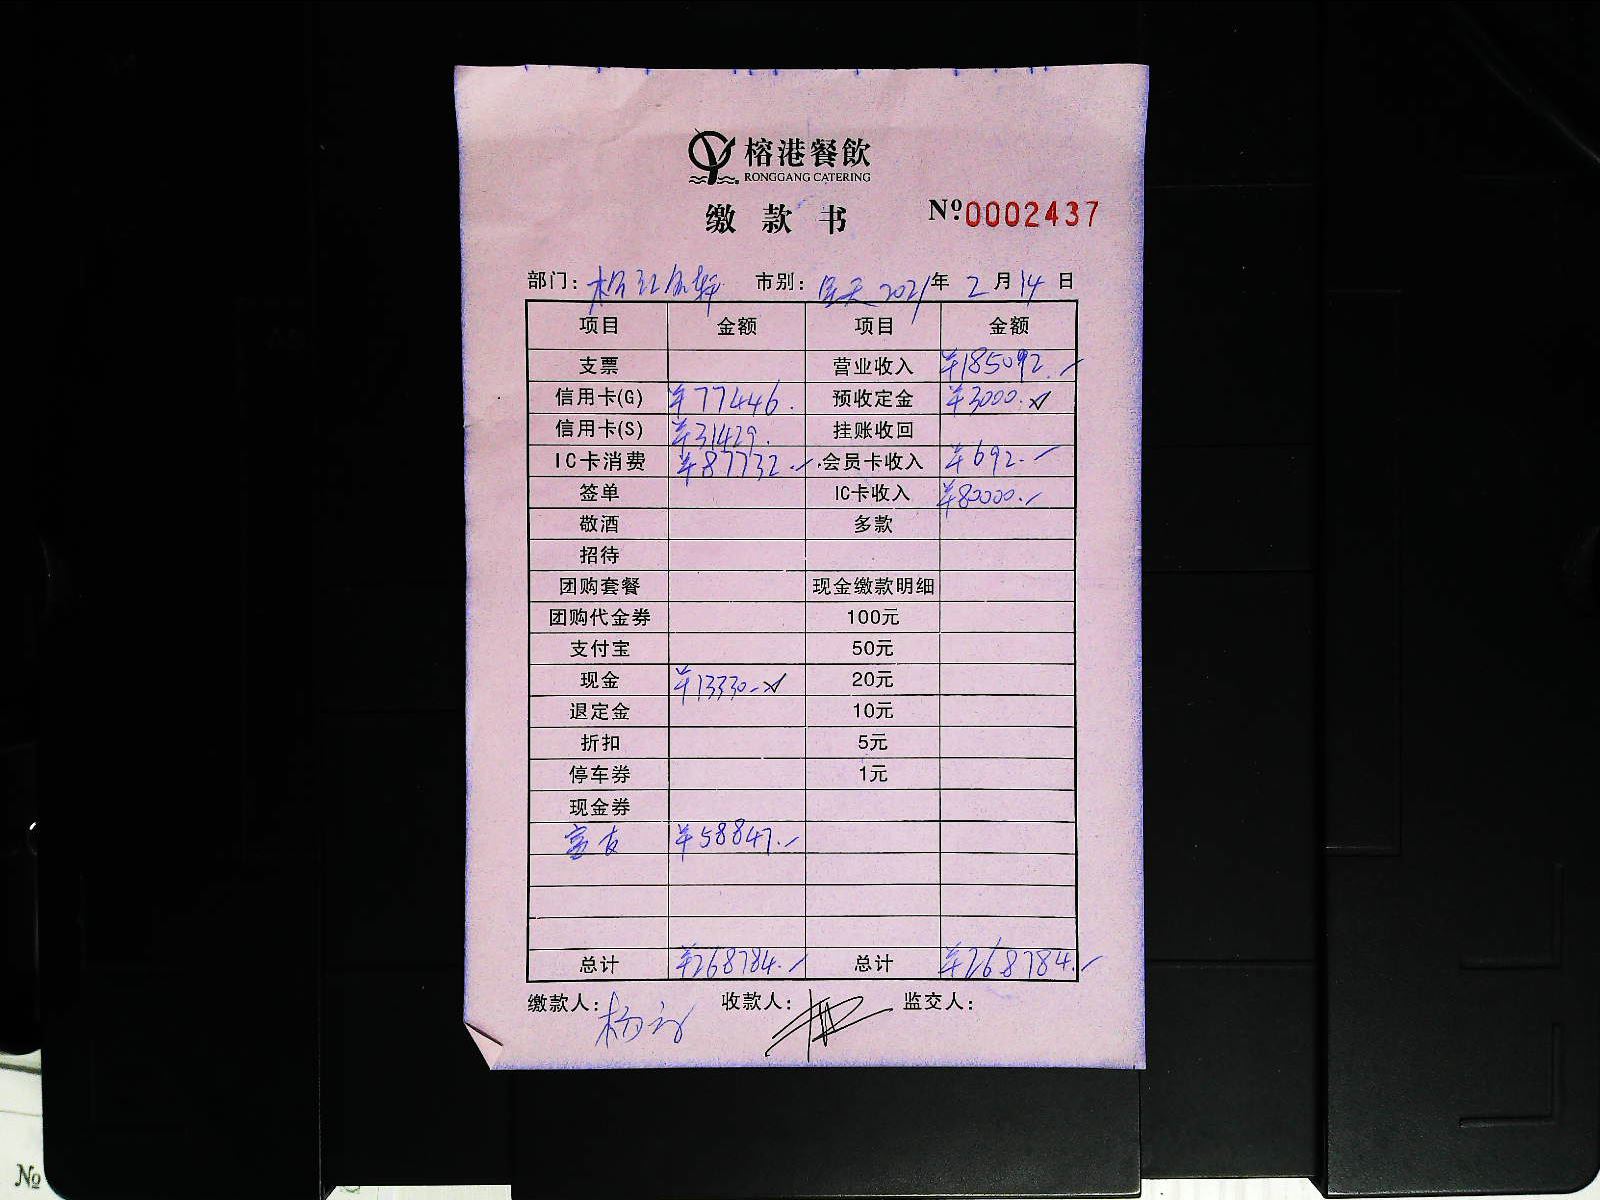 榕港餐飲
RONGGANG CATERING
缴款书 №0002437
部门: 市别: 全天 2021年 2月 14日
项目 金额 项目 金额
支票 营业收入 ¥185092.
信用卡(G) ¥77446. 预收定金 ¥3000.
信用卡(S) ¥31429. 挂账收回
IC卡消费 ¥87732. 会员卡收入 ¥692.
签单 IC卡收入 ¥80000.
敬酒 多款
招待
团购套餐 现金缴款明细
团购代金券 100元
支付宝 50元
现金 ¥13330 20元
退定金 10元
折扣 5元
停车券 1元
现金券
¥58847.
总计 ¥268784. 总计 ¥268784.
缴款人: 收款人: 监交人:
№